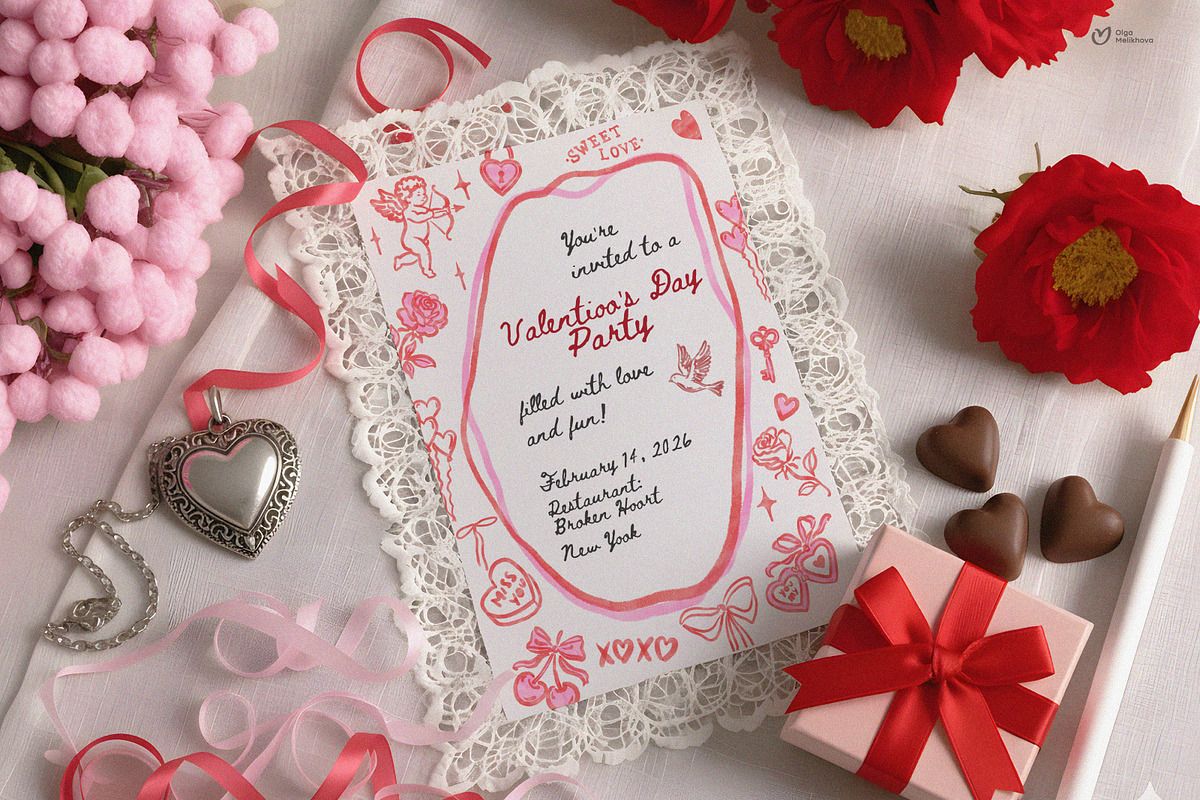 Olga
Melikhova
·SWEET
LOVE·
You're
invited to a
Valentioo's Day
Party
filled with love
and fun!
February 14, 2026
Restaurant:
Broken Hoart
New York
MISS
YOU
XOXO